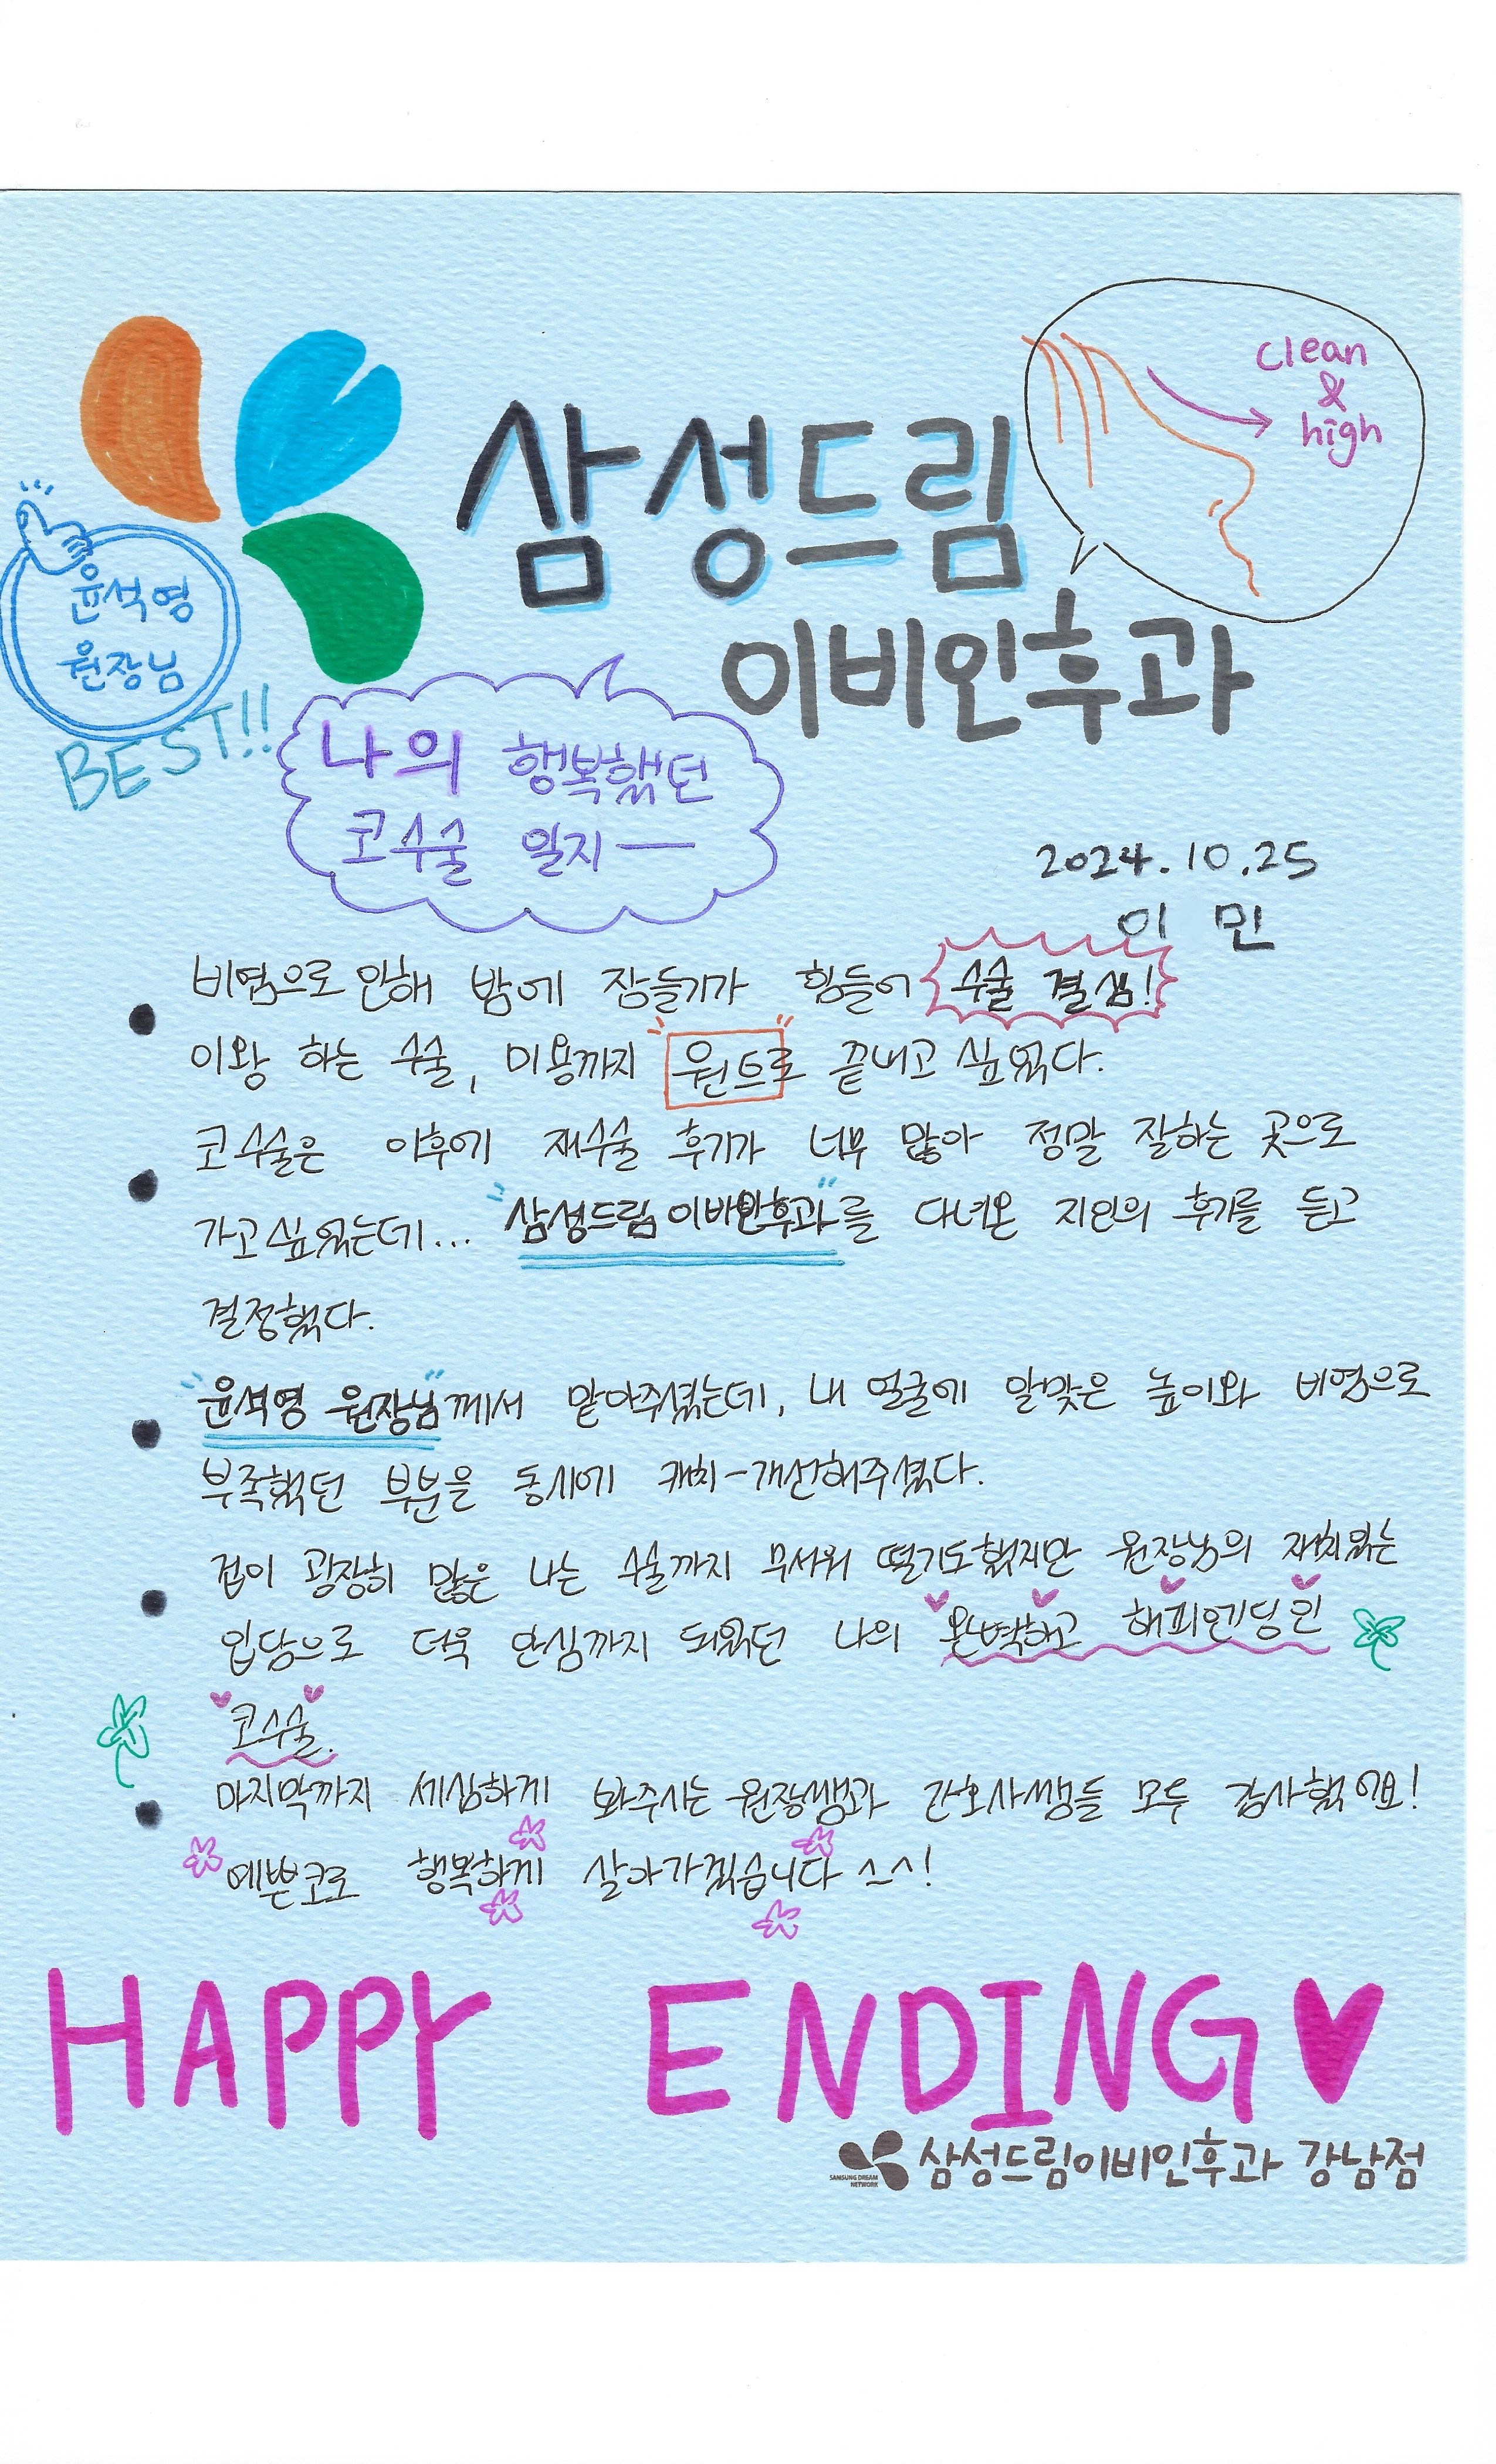 clean
&
high
삼성드림
이비인후과
윤석영
원장님
BEST!!
나의 행복했던
코수술 일지ㅡ
2024.10.25
이 민
비염으로 인해 밤에 잠들기가 힘들어 수술 결심!
이왕 하는 수술, 미용까지 "원으로" 끝내고 싶었다.
코수술은 이후에 재수술 후기가 너무 많아 정말 잘하는 곳으로
가고싶었는데... "삼성드림이비인후과"를 다녀온 지인의 후기를 듣고
결정했다.
"윤석영 원장님"께서 맡아주셨는데, 내 얼굴에 알맞은 높이와 비염으로
부족했던 부분을 동시에 캐치-개선해주셨다.
겁이 굉장히 많은 나는 수술까지 무서워 떨기도했지만 원장님의 재치있는
입담으로 더욱 안심까지 되었던 나의 완벽하고 해피엔딩인
코수술.
마지막까지 세심하게 봐주시는 원장쌤과 간호사쌤들 모두 감사했어요!
예쁜코로 행복하게 살아가겠습니다 ^_^!
HAPPY ENDING♥
SAMSUNG DREAM
NETWORK
삼성드림이비인후과 강남점